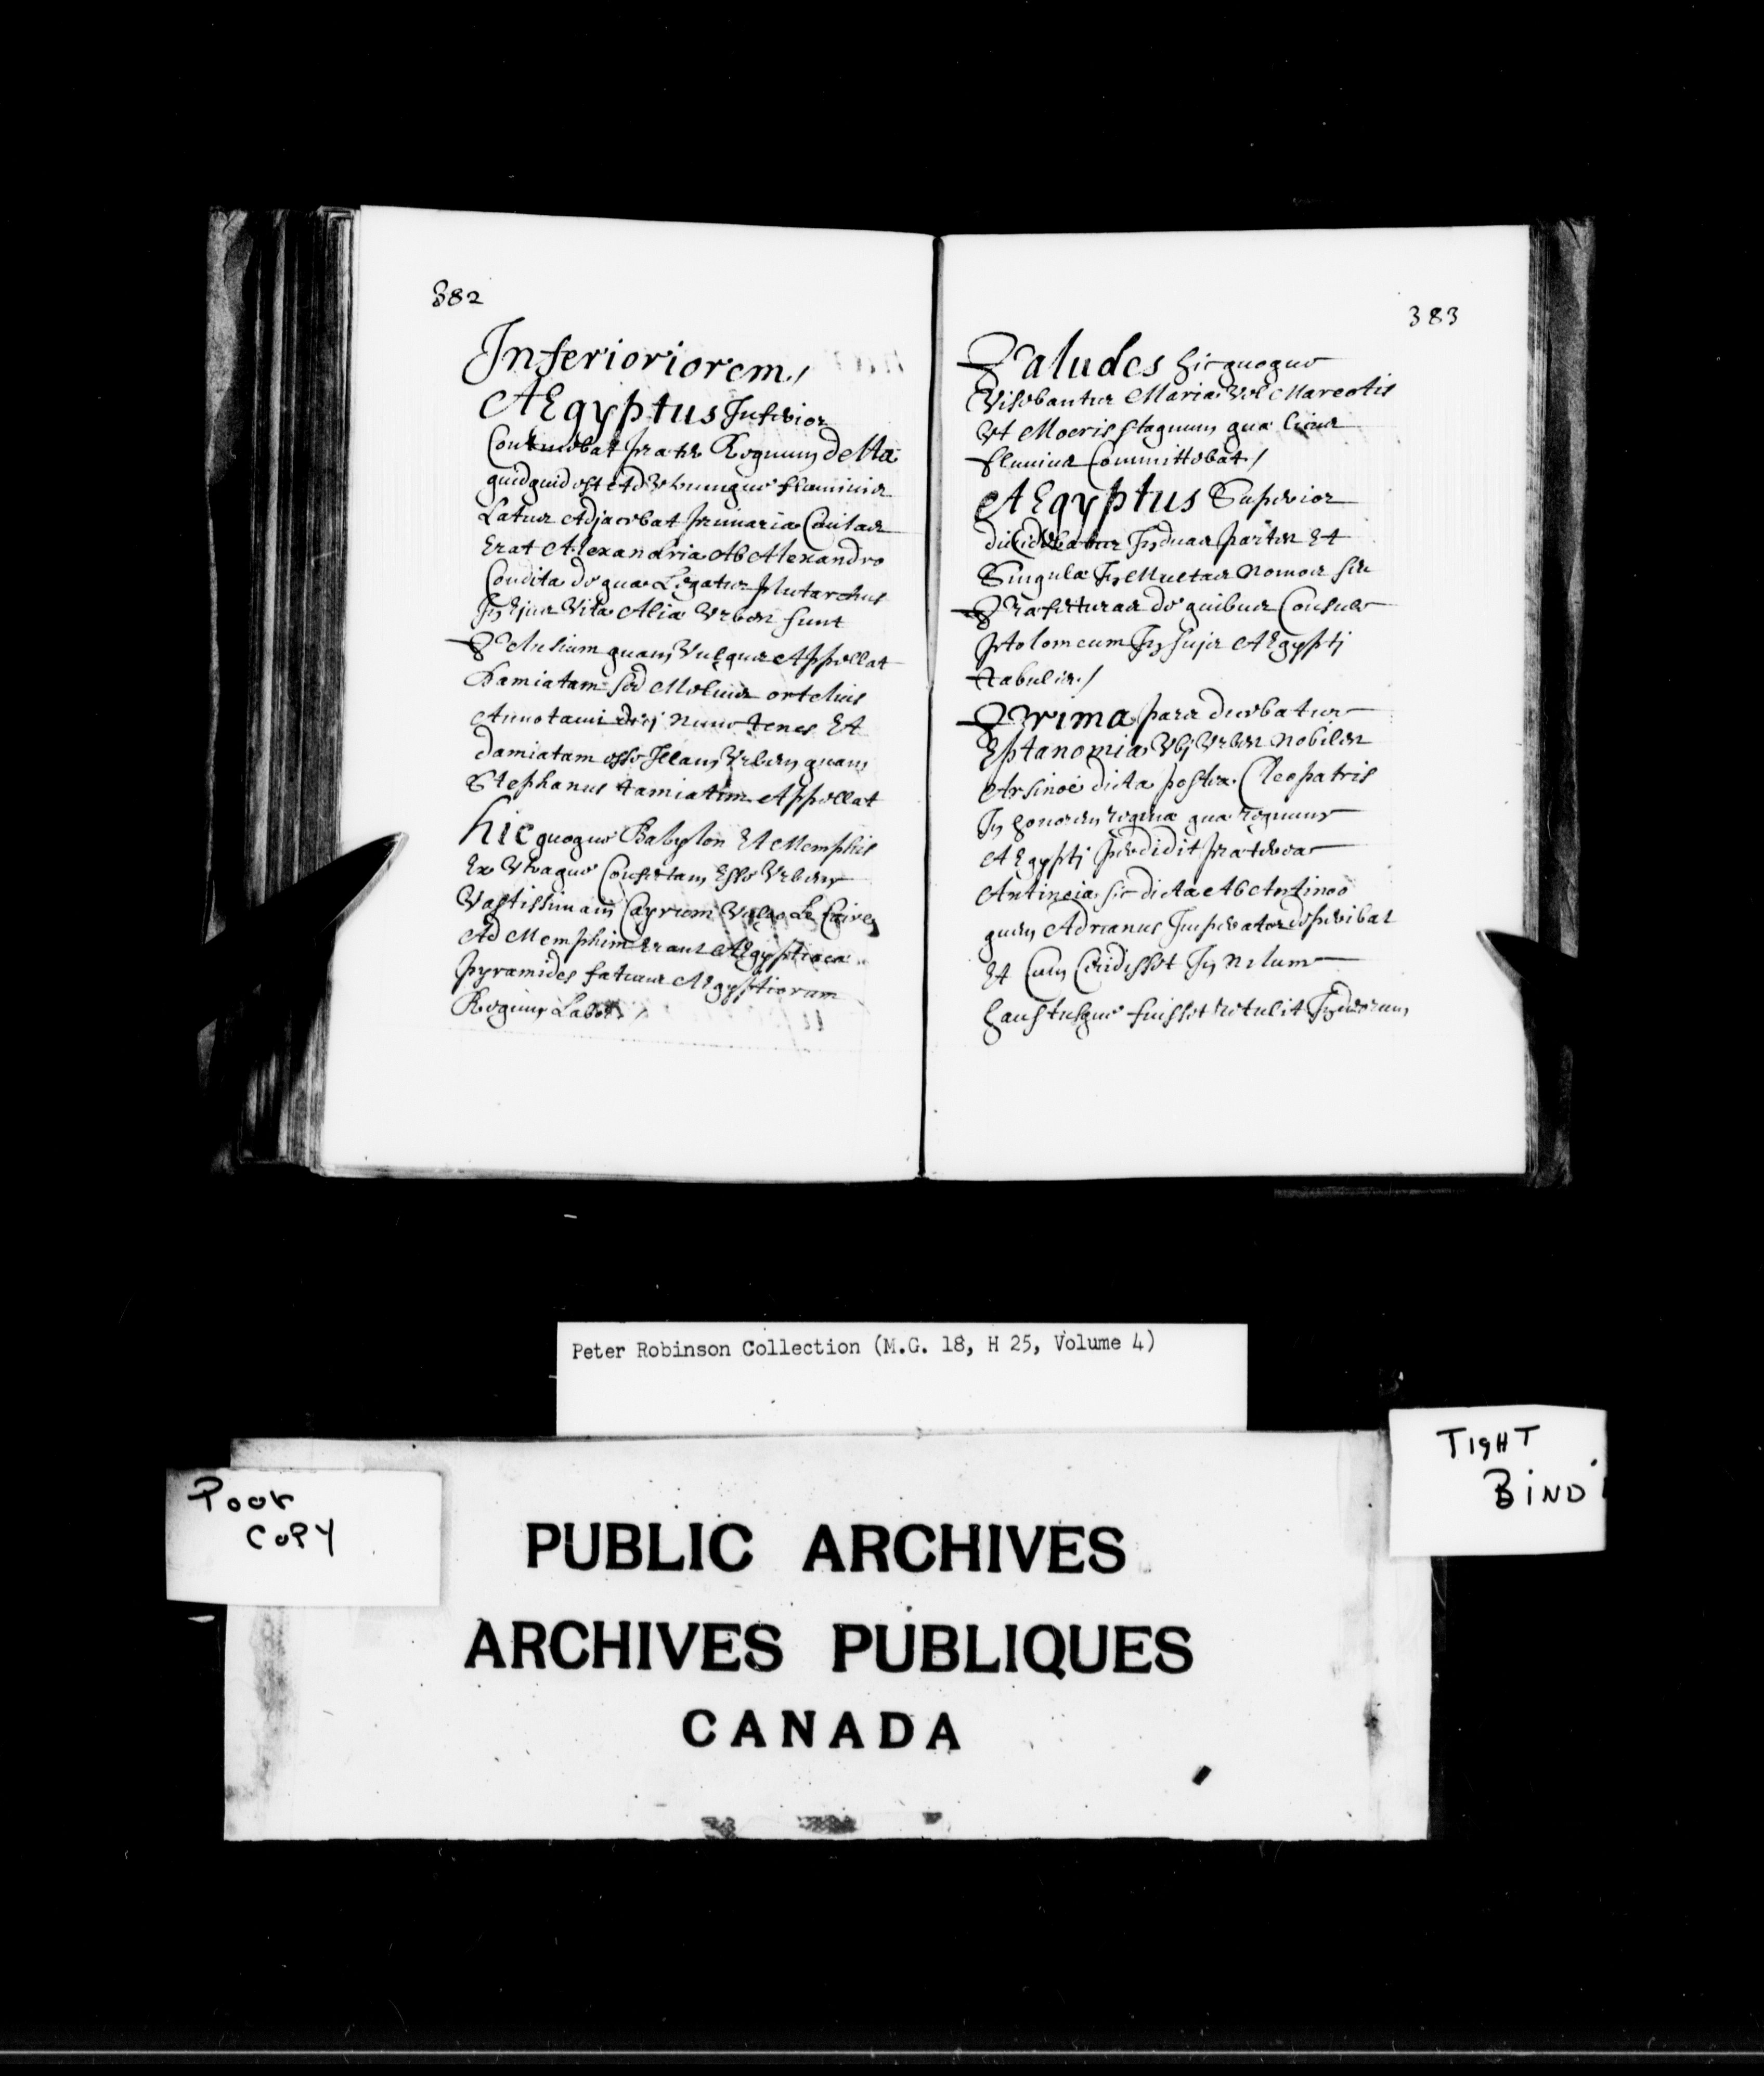 382
Inferioriorem /
AEgyptus Inferior
Continebat præter Regnum delta
quidquid est Ad Utrumque fluminis
Latus Adjacebat primaria Civitas
Erat Alexandria Ab Alexandro
Condita de qua Legatur plutarchus
In Ejus Vita Aliæ Urbes sunt
Pelusium quam Vulgus Appellat
Damiatam sed Melius ortelius
Annotavi dici nunc tenes Et
damiatam esse Illam Urbem quam
Stephanus tamiatim Appellat
hic quoque Babylon Et Memphis
Ex Utraque Confectam Esse Urbem
Vastissimam Cayrum Vulgo Le Caire
Ad Memphim Erant AEgyptiacæ
pyramides fatuus AEgyptiorum
Regum Labor /
383
Paludes hic quoque
Visebantur Maria Vel Mareotis
Et Moeris stagnum qua
fluvius Committebat /
AEgyptus Superior
dividebatur In duas partes Et
Singulæ In Multas nomos seu
Præfecturas de quibus Consule
ptolomeum In suis AEgypti
tabulis /
Prima pars dicebatur
Eptanomia Ubj Urbes nobiles
Arsinoë dicta postea Cleopatris
In honorem reginæ quæ regnum
AEgypti perdidit præterea
Antinoia sic dicta Ab Antinoo
quem Adrianus Imperator deperibat
Et Cum Cecidisset In nilum
haustusque fuisset retulit In deorum
Peter Robinson Collection (M.G. 18, H 25, Volume 4)
Poor
Copy
TIGHT
BIND
PUBLIC ARCHIVES
ARCHIVES PUBLIQUES
CANADA